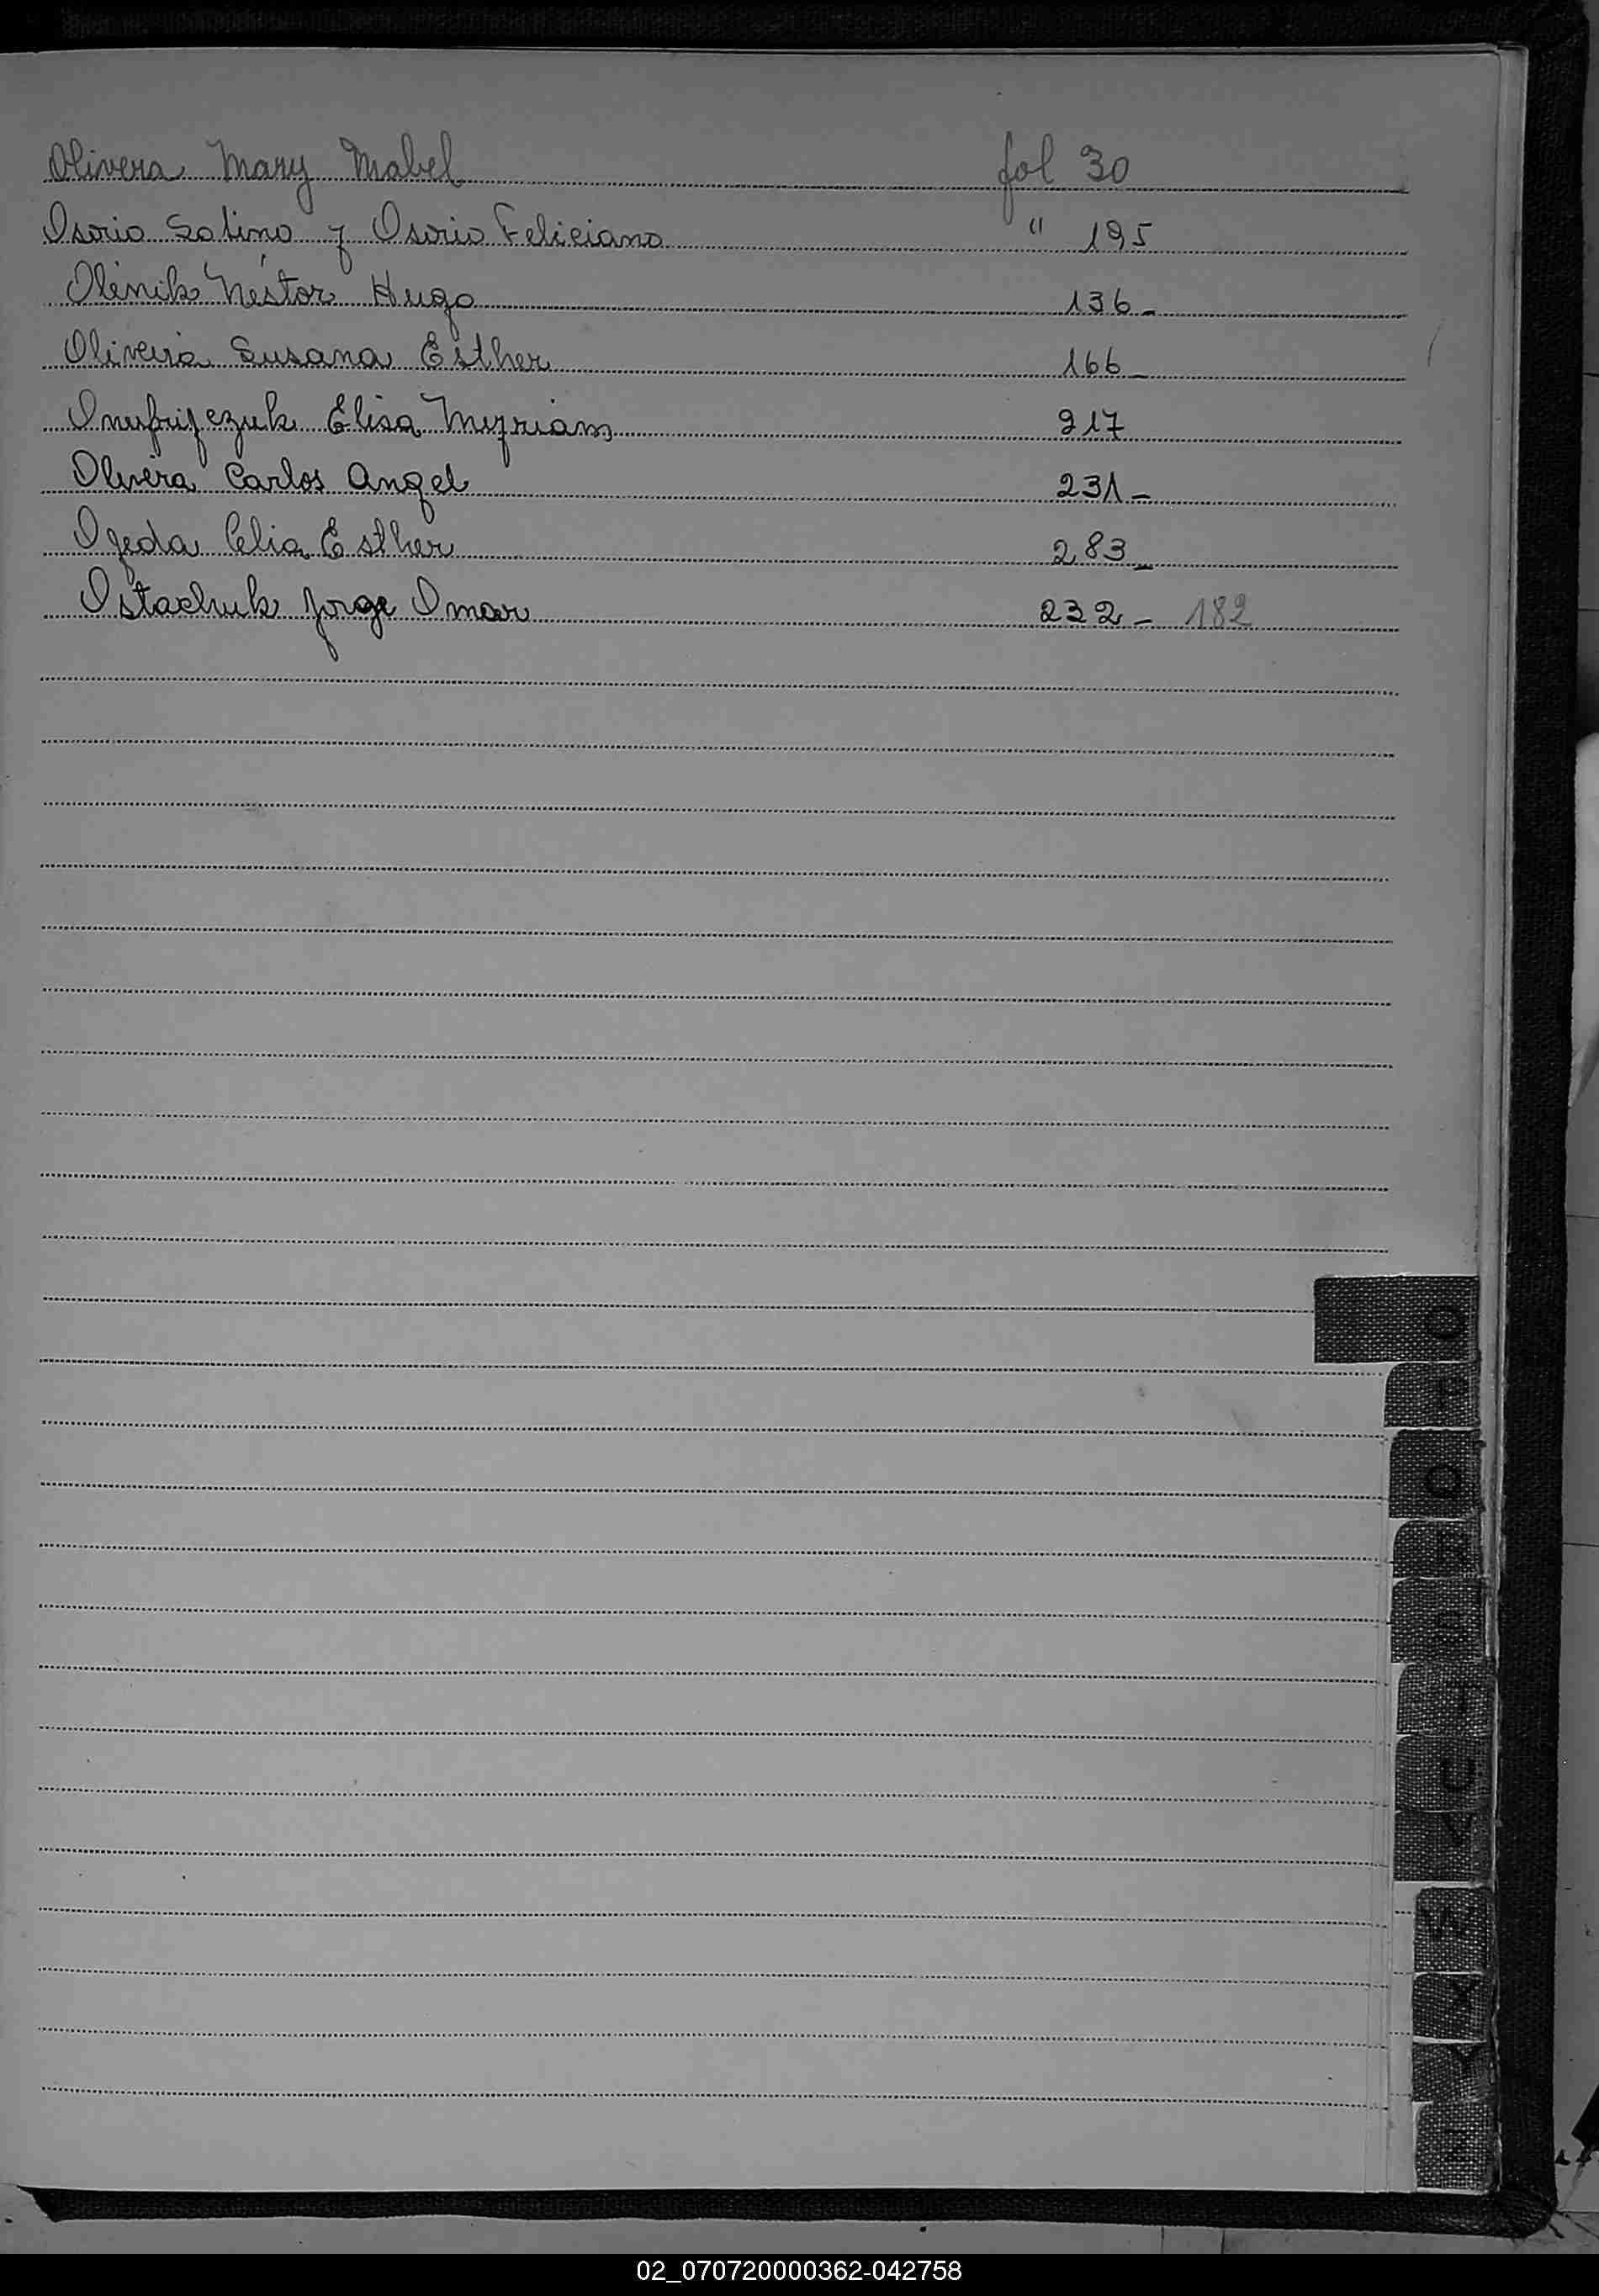 Olivera Mary Mabel fol 30
Osorio Solimo y Osorio Feliciano " 195
Olenik Néstor Hugo 136-
Oliveira Susana Esther 166-
Onufrijczuk Elisa Myriam 217
Olivera Carlos Angel 231-
Ojeda Celia Esther 283-
Ostachuk Jorge Omar 232- 182
O
P
Q
R
S
T
U
V
W
X
Y
Z
02_070720000362-042758